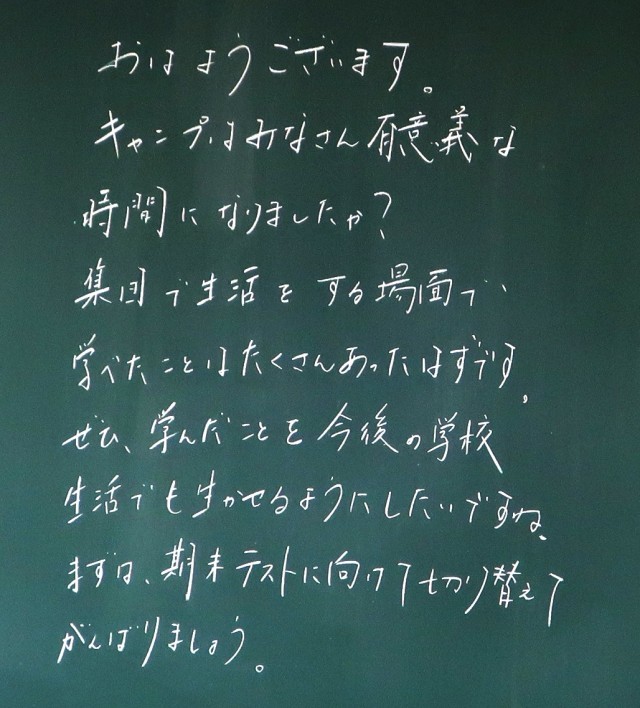 おはようございます。
キャンプはみなさん有意義な
時間になりましたか?
集団で生活をする場面で
学べたことはたくさんあったはずです。
ぜひ、学んだことを今後の学校
生活でも生かせるようにしたいですね。
まずは、期末テストに向けて切り替えて
がんばりましょう。